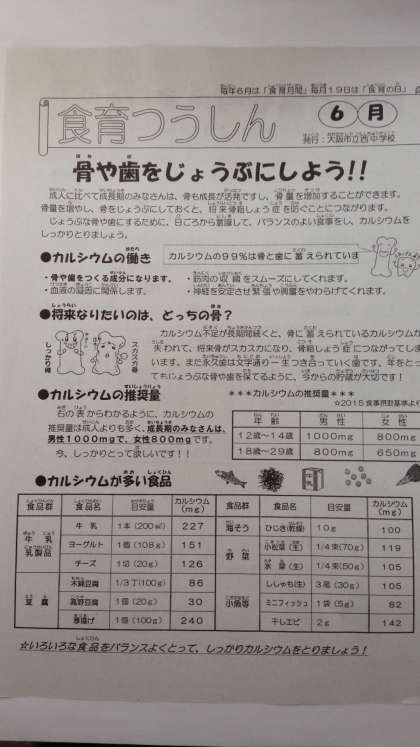 毎年6月は「食育月間」毎月19日は「食育の日」
食育つうしん
6月
発行:大阪市立西中学校
骨や歯をじょうぶにしよう!!
成人に比べて成長期のみなさんは、骨も成長が活発ですし、骨量を増加することができます。
骨量を増やし、骨をじょうぶにしておくと、将来骨粗しょう症を防ぐことにつながります。
じょうぶな骨や歯にするために、日ごろから意識して、バランスのよい食事をし、カルシウムを
しっかりとりましょう。
●カルシウムの働き
カルシウムの99%は骨と歯に蓄えられていま
・骨や歯をつくる成分になります。
・筋肉の収縮をスムーズにしてくれます。
・血液の凝固に関係します。
・神経を安定させ緊張や興奮をやわらげてくれます。
●将来なりたいのは、どっちの骨?
しっかり骨
スカスカ骨
カルシウム不足が長期間続くと、骨に蓄えられているカルシウムが
失われて、骨格がスカスカになり、骨粗しょう症につながってしま
います。また永久歯は文字通り一生つき合っていく歯です。年をとっ
てもじょうぶな骨や歯を保てるように、今からの貯蔵が大切です!
●カルシウムの推奨量
石の表からわかるように、カルシウムの
推奨量は成人よりも多く、成長期のみなさんは、
男性1000mgで、女性800mgです。
今、しっかりとって欲しいです!!
***カルシウムの推奨量***
☆2015食事摂取基準より
年齢 男性 女性
12歳〜14歳 1000mg 800mg
18歳〜29歳 800mg 650mg
●カルシウムが多い食品
食品群 食品名 目安量 カルシウム(mg) 食品群 食品名 目安量 カルシウム(mg)
牛乳・乳製品 牛乳 1本(200㎖) 227 海そう ひじき(乾燥) 10g 100
ヨーグルト 1個(108g) 151 野菜 小松菜(生) 1/4束(70g) 119
チーズ 1切(20g) 126 水菜(生) 1/4束(50g) 105
豆腐 木綿豆腐 1/3丁(100g) 86 小魚等 ししゃも(生) 3尾(30g) 105
高野豆腐 1個(20g) 30 ミニフィッシュ 1袋(5g) 82
厚揚げ 1個(100g) 240 干しエビ 2g 142
☆いろいろな食品をバランスよくとって、しっかりカルシウムをとりましょう!